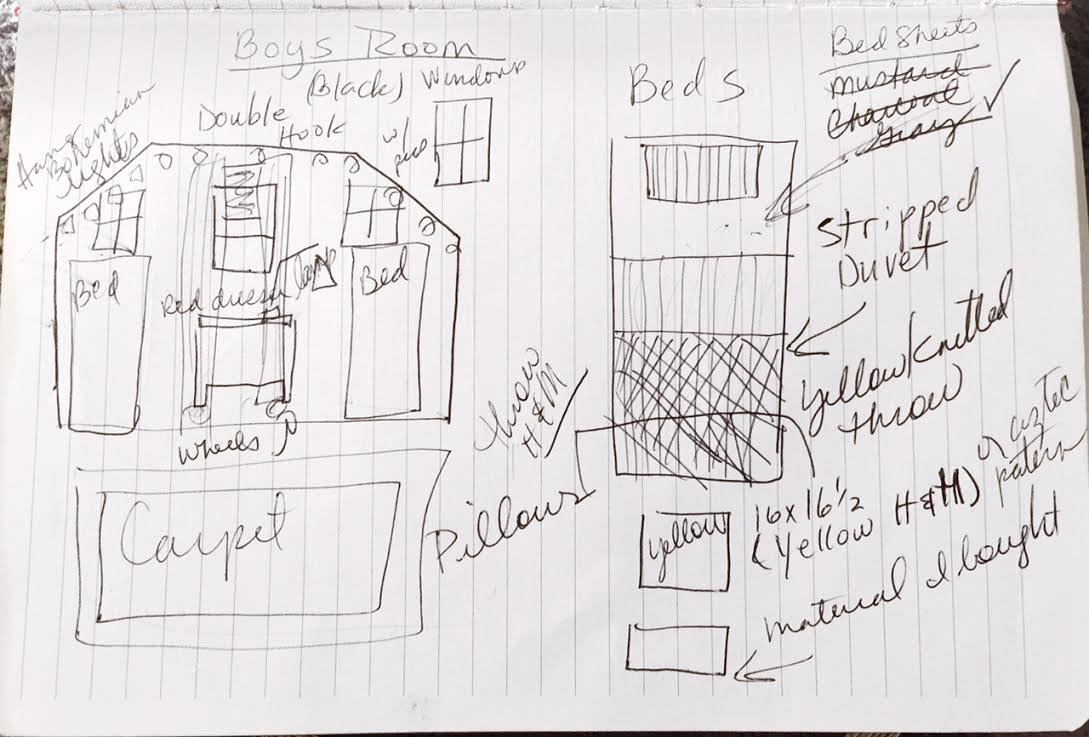 Boys Room
Hang
Bohemian
lights
Double
(Black)
Hook
Windows
w/
pics
Bed
Red dresser
lamp
Bed
wheels
Carpet
Beds
Bed Sheets
Mustard
Charcoal
Gray
Stripped
Duvet
Yellow Knitted
throw
throw
H&M
Pillows
yellow
16x16½
(Yellow H&M)
or aztec
patern
material I bought